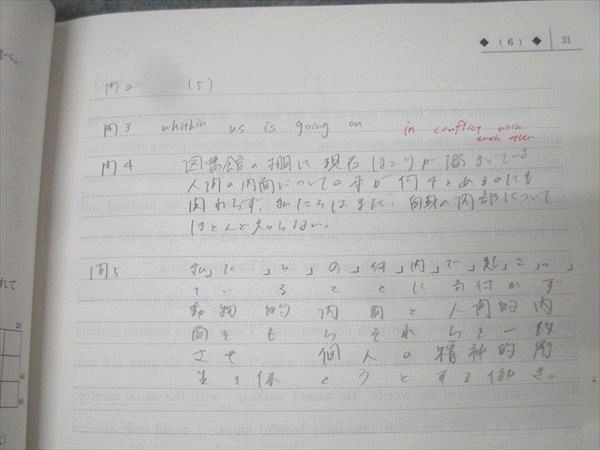 ◆ (6) ◆ 31
問2 (5)
問3 whithin us is going on in conflict with
each other
問4 図書館の棚に現在ほこりが溜まっている
人間の内面についての本が何千とあるのにも
関わらず、私たちはまだ、自身の内部について
ほとんど知らない。
問5 私たちの体内で起こっ
ていることに気付かず
動物的内面と人間的内
面をもちそれらを一致
させ 個人の精神的
を保とうとする働き。